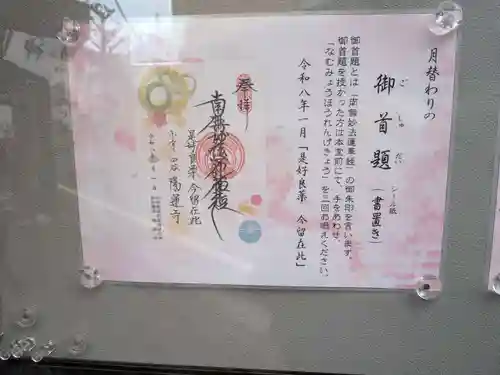 月替わりの
御首題
ごしゅだい
シール紙
(書置き)
御首題とは「南無妙法蓮華経」の御朱印を言います。
御首題を授かった方は本堂前にて、手をあわせ、
「なむみょうほうれんげきょう」を三回お唱えください。
令和八年一月「是好良薬 今留在此」
奉拝
南無妙法蓮華経
是好良薬 今留在此
陽運寺